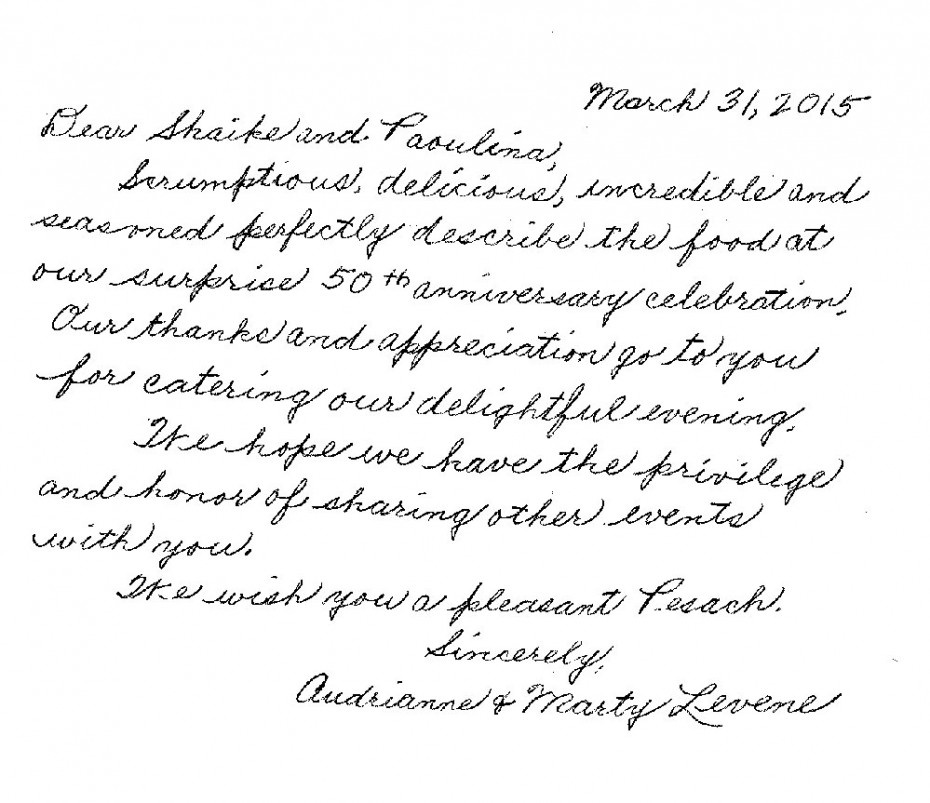 March 31, 2015
Dear Shaike and Paoulina,
Scrumptious, delicious, incredible and
seasoned perfectly describe the food at
our surprise 50th anniversary celebration.
Our thanks and appreciation go to you
for catering our delightful evening.
We hope we have the privilege
and honor of sharing other events
with you.
We wish you a pleasant Pesach.
Sincerely,
Audrianne & Marty Levene